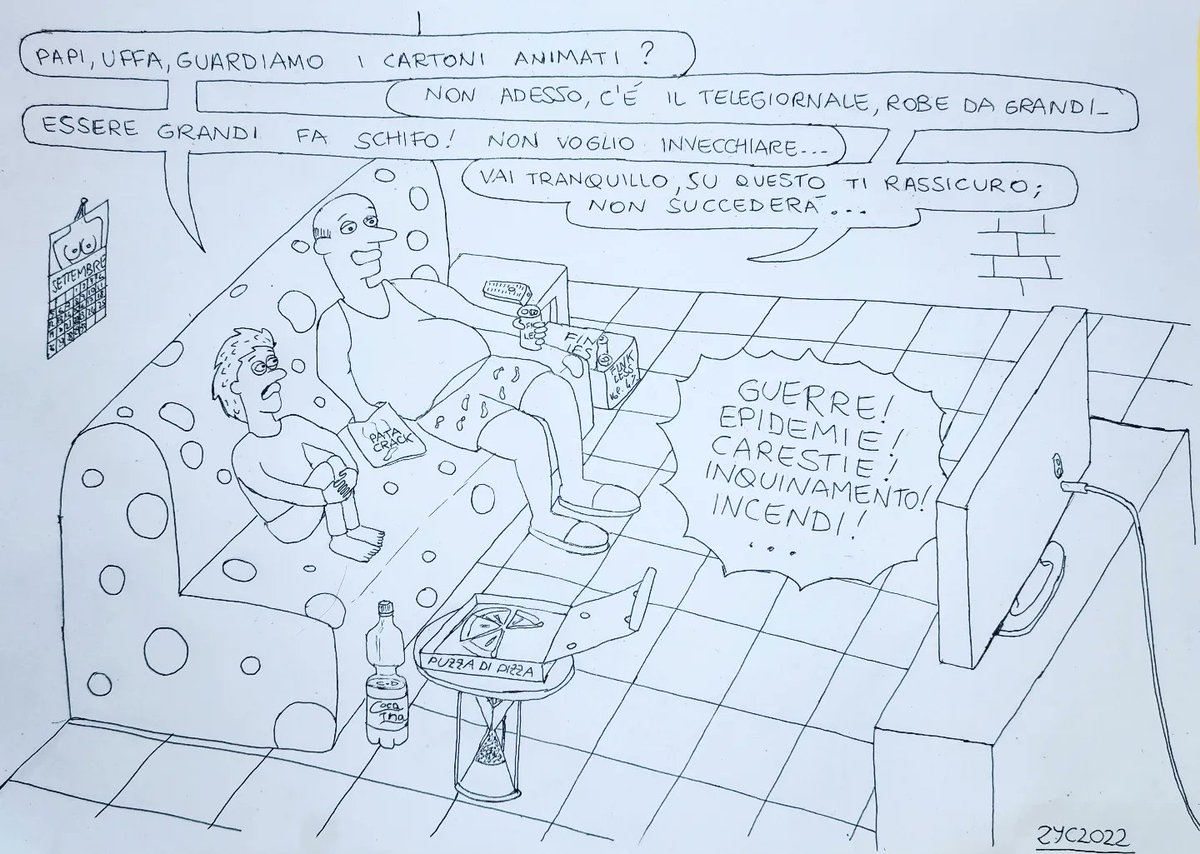 PAPI, UFFA, GUARDIAMO I CARTONI ANIMATI?
NON ADESSO, C'É IL TELEGIORNALE, ROBE DA GRANDI_
ESSERE GRANDI FA SCHIFO! NON VOGLIO INVECCHIARE...
VAI TRANQUILLO, SU QUESTO TI RASSICURO;
NON SUCCEDERÁ...
SETTEMBRE
GUERRE!
EPIDEMIE!
CARESTIE!
INQUINAMENTO!
INCENDI!
...
FIN
LES
FINK
LESS
PATA
CRACK
PUZZA DI PIZZA
Coca
Ina
ZYC2022